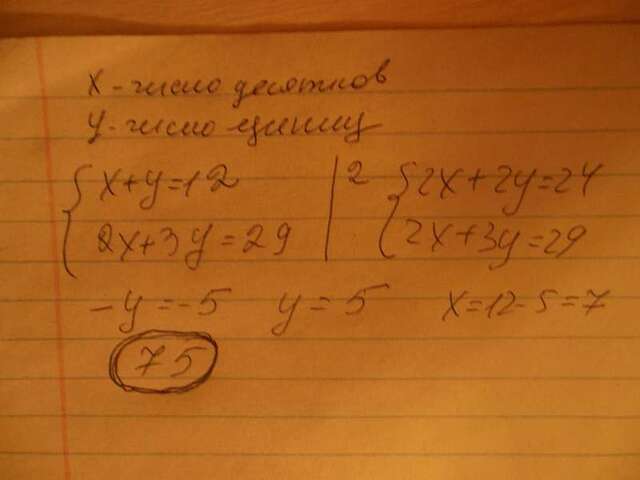 x - число десятков
y - число единиц
{ x+y=12 | 2 { 2x+2y=24
2x+3y=29 | 2x+3y=29
-y=-5 y=5 x=12-5=7
75